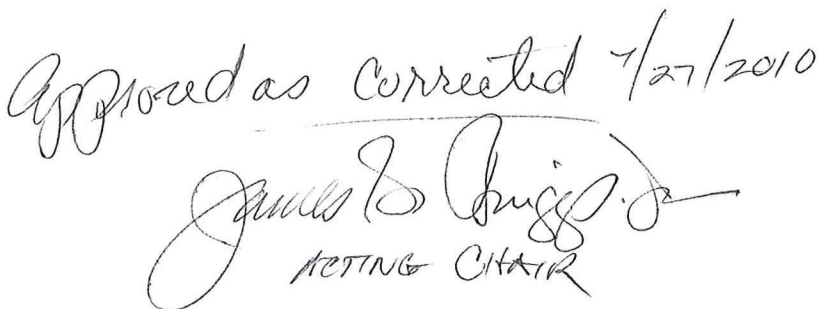 Approved as corrected 7/27/2010
James S. Griggs. Jr
ACTING CHAIR